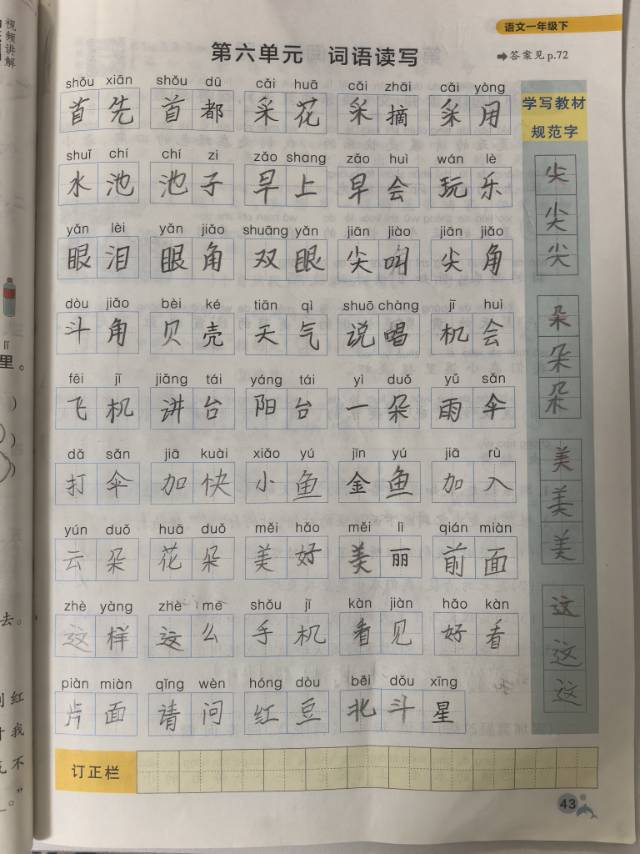 视频讲解
语文一年级下
第六单元 词语读写
➡答案见 p.72
shǒu xiān shǒu dū cǎi huā cǎi zhāi cǎi yòng
首先 首都 采花 采摘 采用
学写教材
规范字
shuǐ chí chí zi zǎo shang zǎo huì wán lè
水池 池子 早上 早会 玩乐
尖
尖
尖
yǎn lèi yǎn jiǎo shuāng yǎn jiān jiào jiān jiǎo
眼泪 眼角 双眼 尖叫 尖角
dòu jiǎo bèi ké tiān qì shuō chàng jī huì
斗角 贝壳 天气 说唱 机会
朵
朵
朵
fēi jī jiǎng tái yáng tái yì duǒ yǔ sǎn
飞机 讲台 阳台 一朵 雨伞
dǎ sǎn jiā kuài xiǎo yú jīn yú jiā rù
打伞 加快 小鱼 金鱼 加入
美
美
美
yún duǒ huā duǒ měi hǎo měi lì qián miàn
云朵 花朵 美好 美丽 前面
zhè yàng zhè me shǒu jī kàn jiàn hǎo kàn
这样 这么 手机 看见 好看
这
这
这
piàn miàn qǐng wèn hóng dòu běi dǒu xīng
片面 请问 红豆 北斗星
订正栏
43
里。
去。
红
我
不